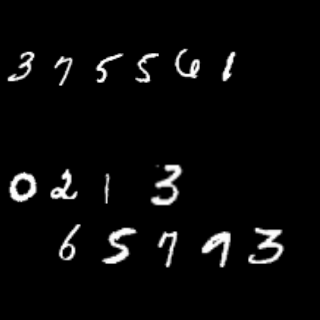 375561
021 3
65793